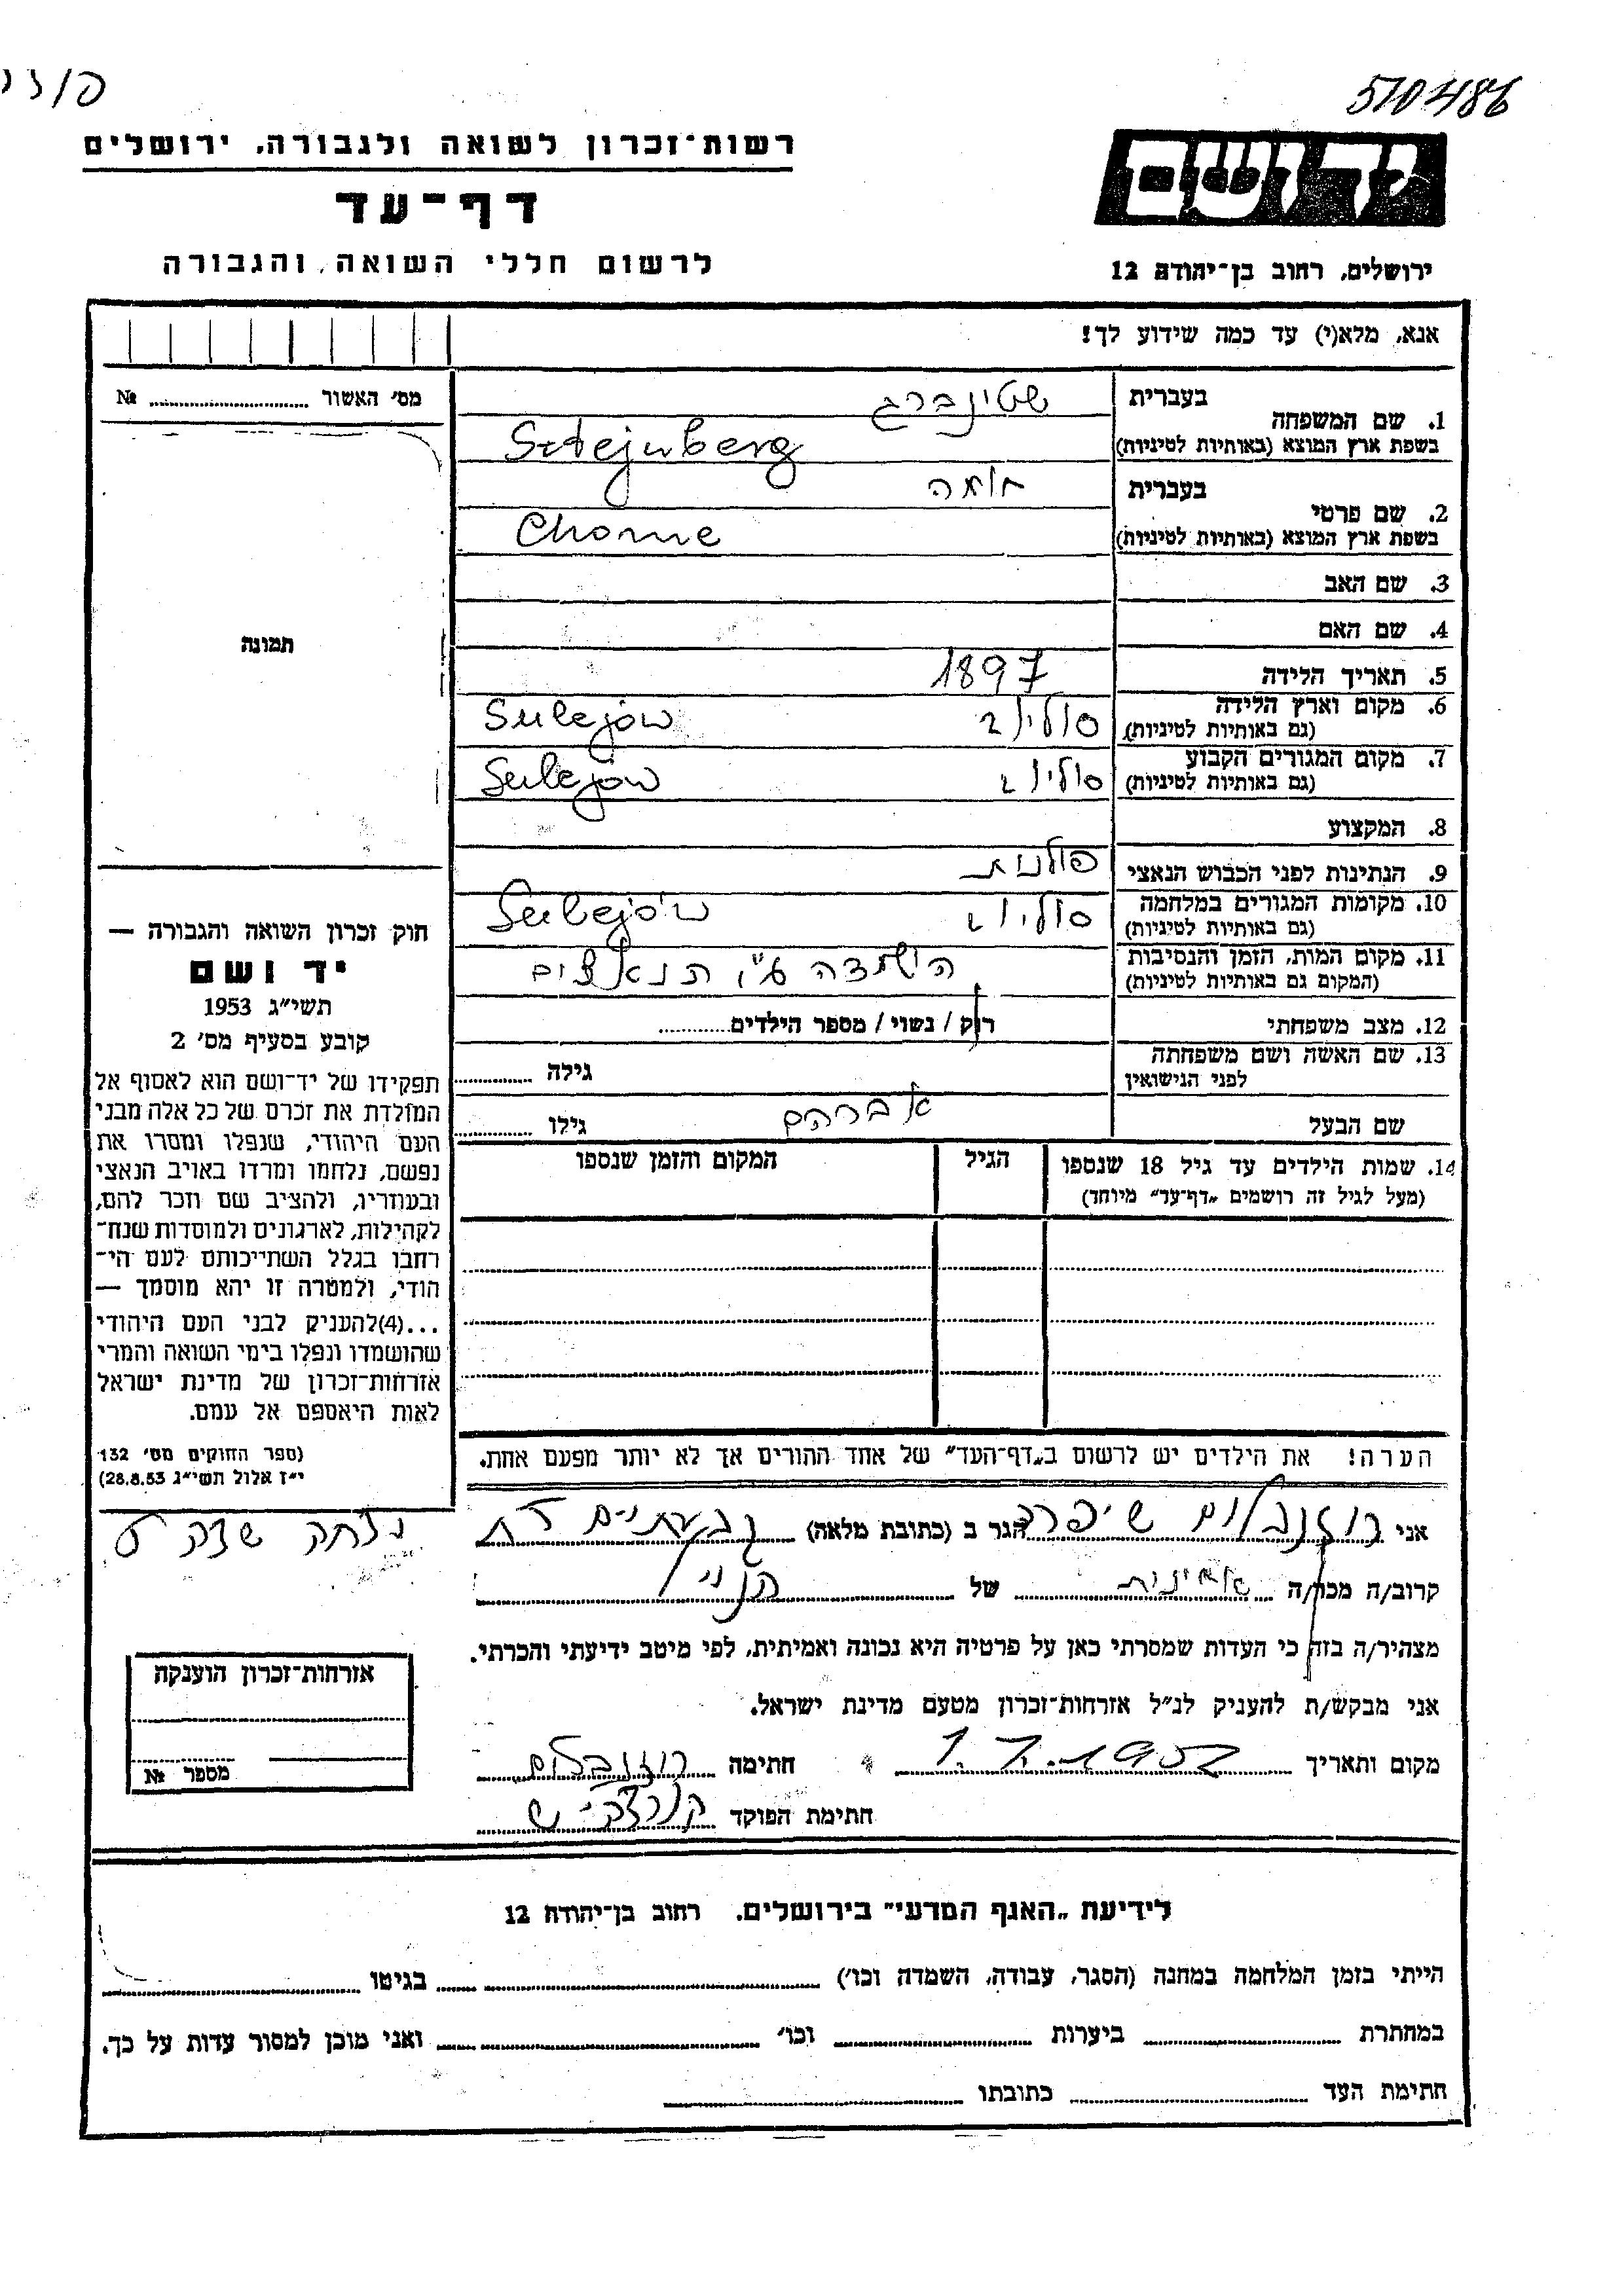 510486
רשות־זכרון לשואה ולגבורה, ירושלים
דף־עד
לרשום חללי השואה והגבורה
יד ושם
ירושלים, רחוב בן־יהודה 12
אנא, מלא(י) עד כמה שידוע לך!
מס׳ האשור № 
1. שם המשפחה
בעברית שטינברג
בשפת ארץ המוצא (באותיות לטיניות) Sztejnberg
2. שם פרטי
בעברית חומה
בשפת ארץ המוצא (באותיות לטיניות) Chome
3. שם האב
4. שם האם
5. תאריך הלידה 1897
6. מקום וארץ הלידה סוליוב Sulejów
(גם באותיות לטיניות)
7. מקום המגורים הקבוע סוליוב Sulejów
(גם באותיות לטיניות)
8. המקצוע
9. הנתינות לפני הכבוש הנאצי פולנית
10. מקומות המגורים במלחמה סוליוב Sulejów
(גם באותיות לטיניות)
11. מקום המות, הזמן והנסיבות
(המקום גם באותיות לטיניות)
12. מצב משפחתי רוק / נשוי / מספר הילדים
13. שם האשה ושם משפחתה
לפני הנישואין גילה
שם הבעל אברהם גילו
14. שמות הילדים עד גיל 18 שנספו הגיל המקום והזמן שנספו
(מעל לגיל זה רושמים „דף־עד״ מיוחד)
הערה! את הילדים יש לרשום ב„דף־העד״ של אחד ההורים אך לא יותר מפעם אחת.
תמונה
חוק זכרון השואה והגבורה —
יד ושם
תשי״ג 1953
קובע בסעיף מס׳ 2
תפקידו של יד־ושם הוא לאסוף אל
המולדת את זכרם של כל אלה מבני
העם היהודי, שנפלו ומסרו את
נפשם, נלחמו ומרדו באויב הנאצי
ובעוזריו, ולהציב שם וזכר להם,
לקהילות, לארגונים ולמוסדות שנח־
רחבו בגלל השתייכותם לעם הי־
הודי, ולמטרה זו יהא מוסמך —
...(4)להעניק לבני העם היהודי
שהושמדו ונפלו בימי השואה והמרי
אזרחות־זכרון של מדינת ישראל
לאות היאספם אל עמם.
(ספר החוקים מס׳ 132
י״ז אלול תשי״ג 28.8.53)
אני רוזנבלום שיפרה הגר ב (כתובת מלאה) גבעתיים
קרוב/ה מכר/ה של
מצהיר/ה בזה כי העדות שמסרתי כאן על פרטיה היא נכונה ואמיתית, לפי מיטב ידיעתי והכרתי.
אני מבקש/ת להעניק לנ״ל אזרחות־זכרון מטעם מדינת ישראל.
מקום ותאריך חתימה רוזנבלום
חתימת הפוקד
אזרחות־זכרון הוענקה
מספר №
לידיעת „האגף המדעי״ בירושלים, רחוב בן־יהודה 12
הייתי בזמן המלחמה במחנה (הסגר, עבודה, השמדה וכו׳) בגיטו
במחתרת ביערות וכו׳ ואני מוכן למסור עדות על כך.
חתימת העד כתובתו